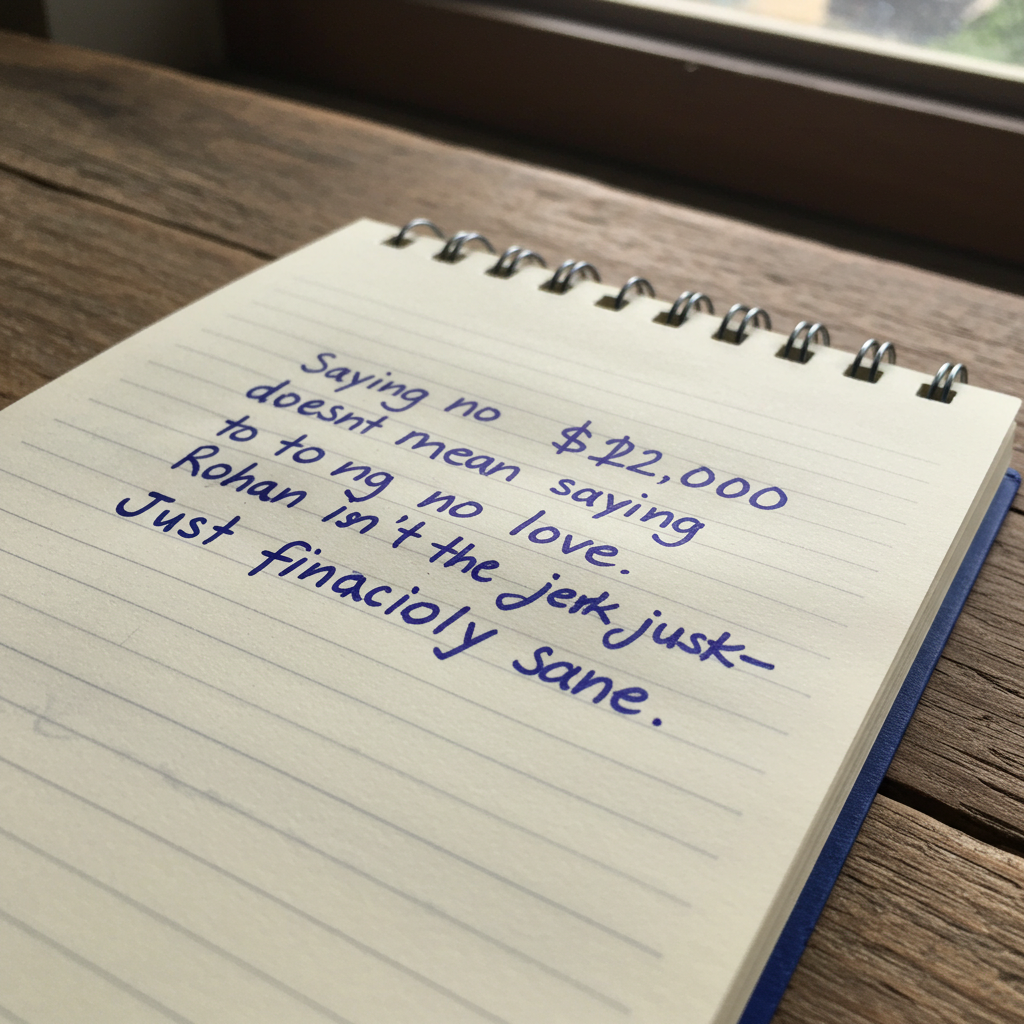 Saying no $12,000
doesnt mean saying
to to ng no love.
Rohan isn't the jerk jusk-
Just finacioly sane.